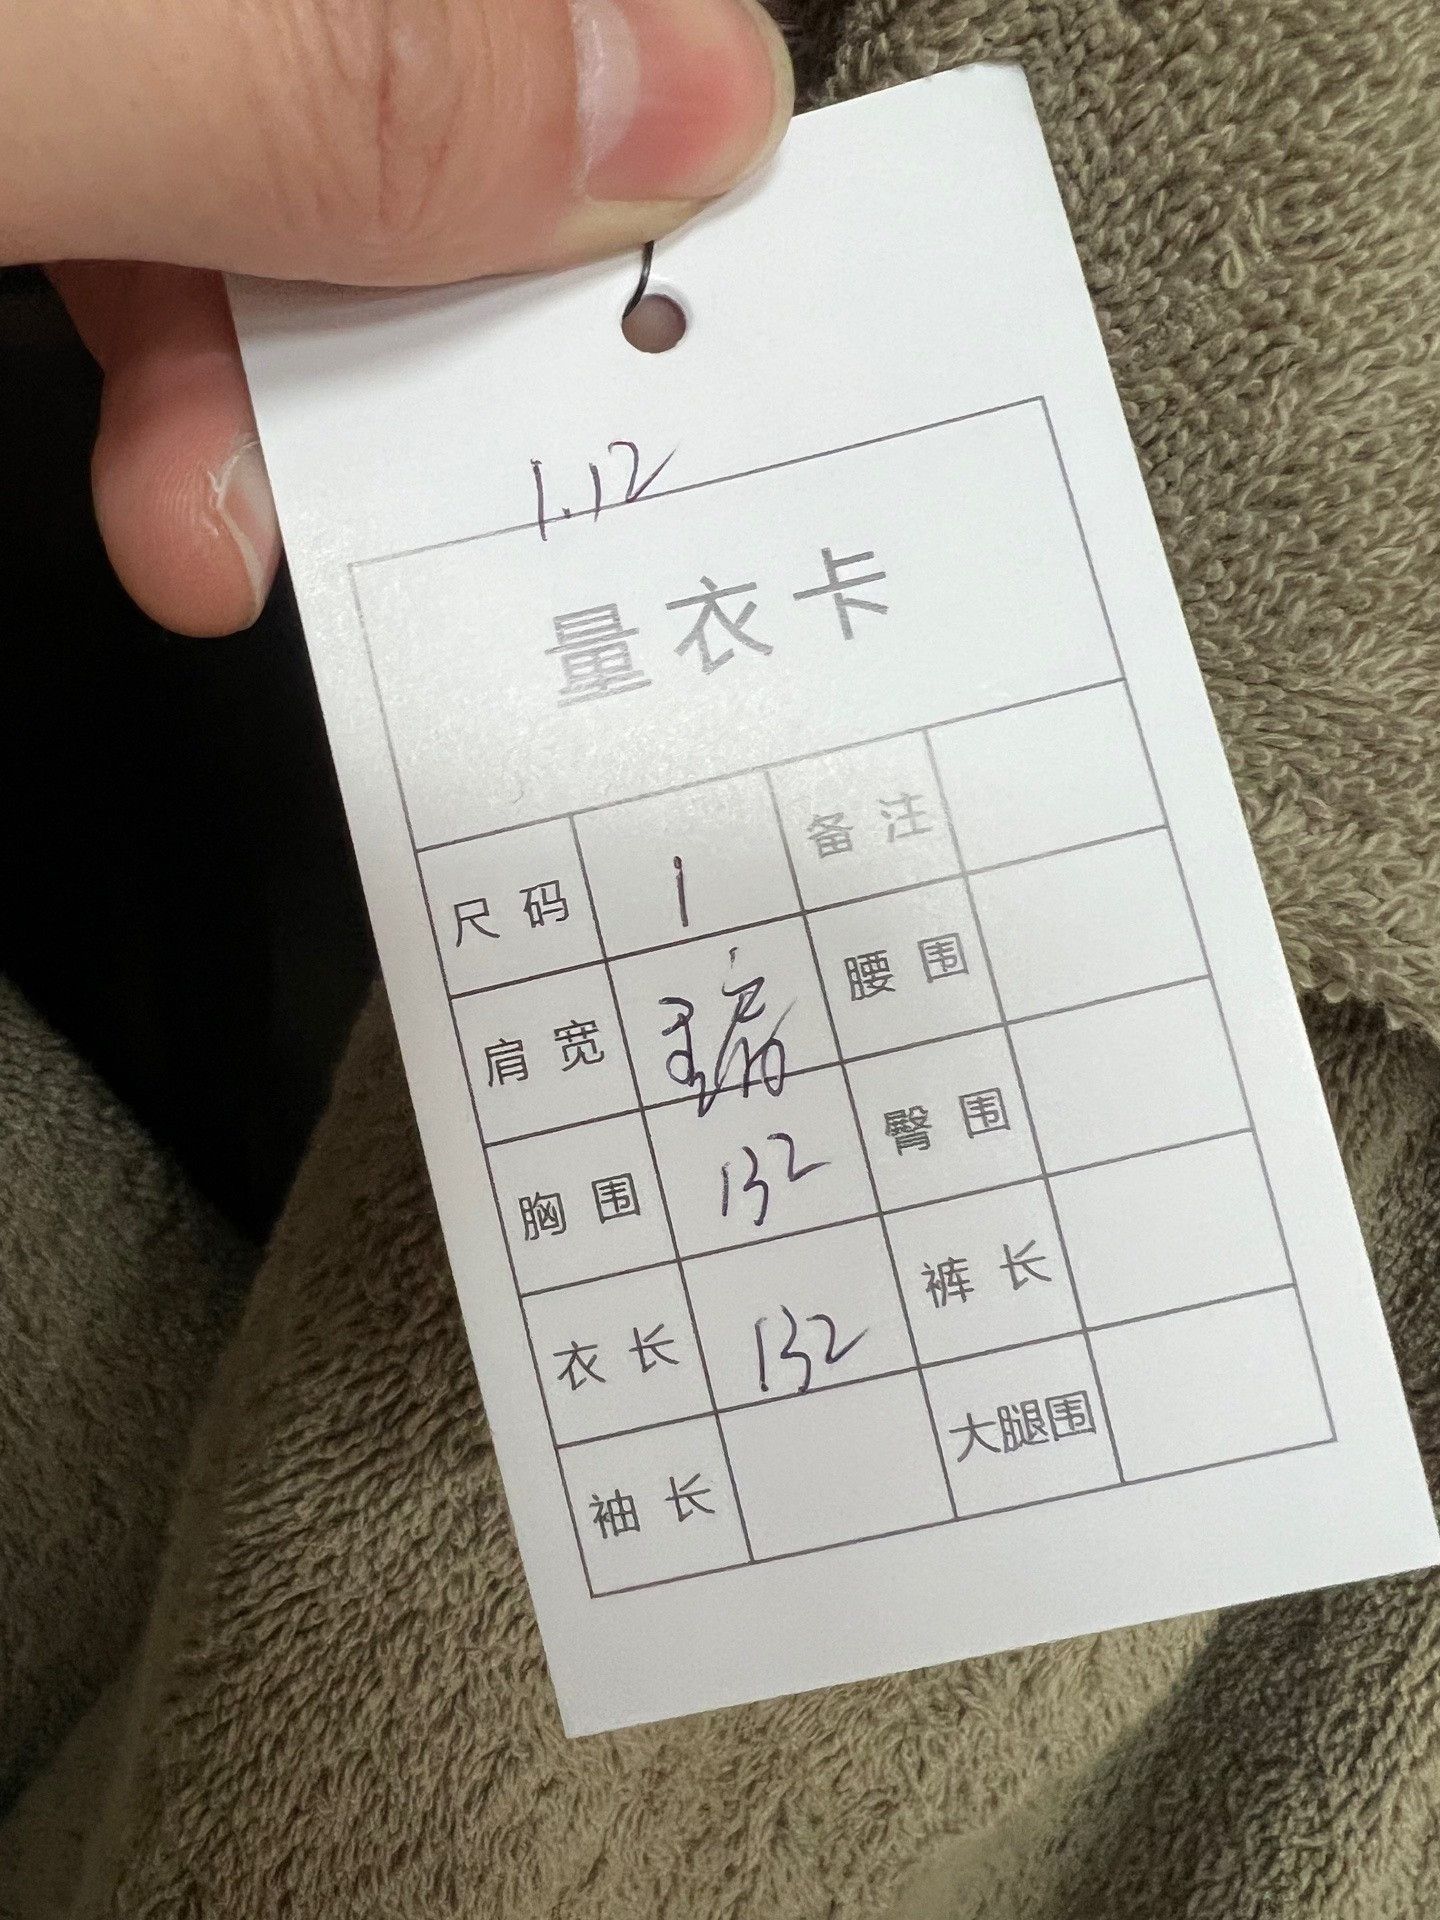 1.12
量衣卡
尺码 1 备注
肩宽 腰围
胸围 132 臀围
衣长 132 裤长
袖长 大腿围